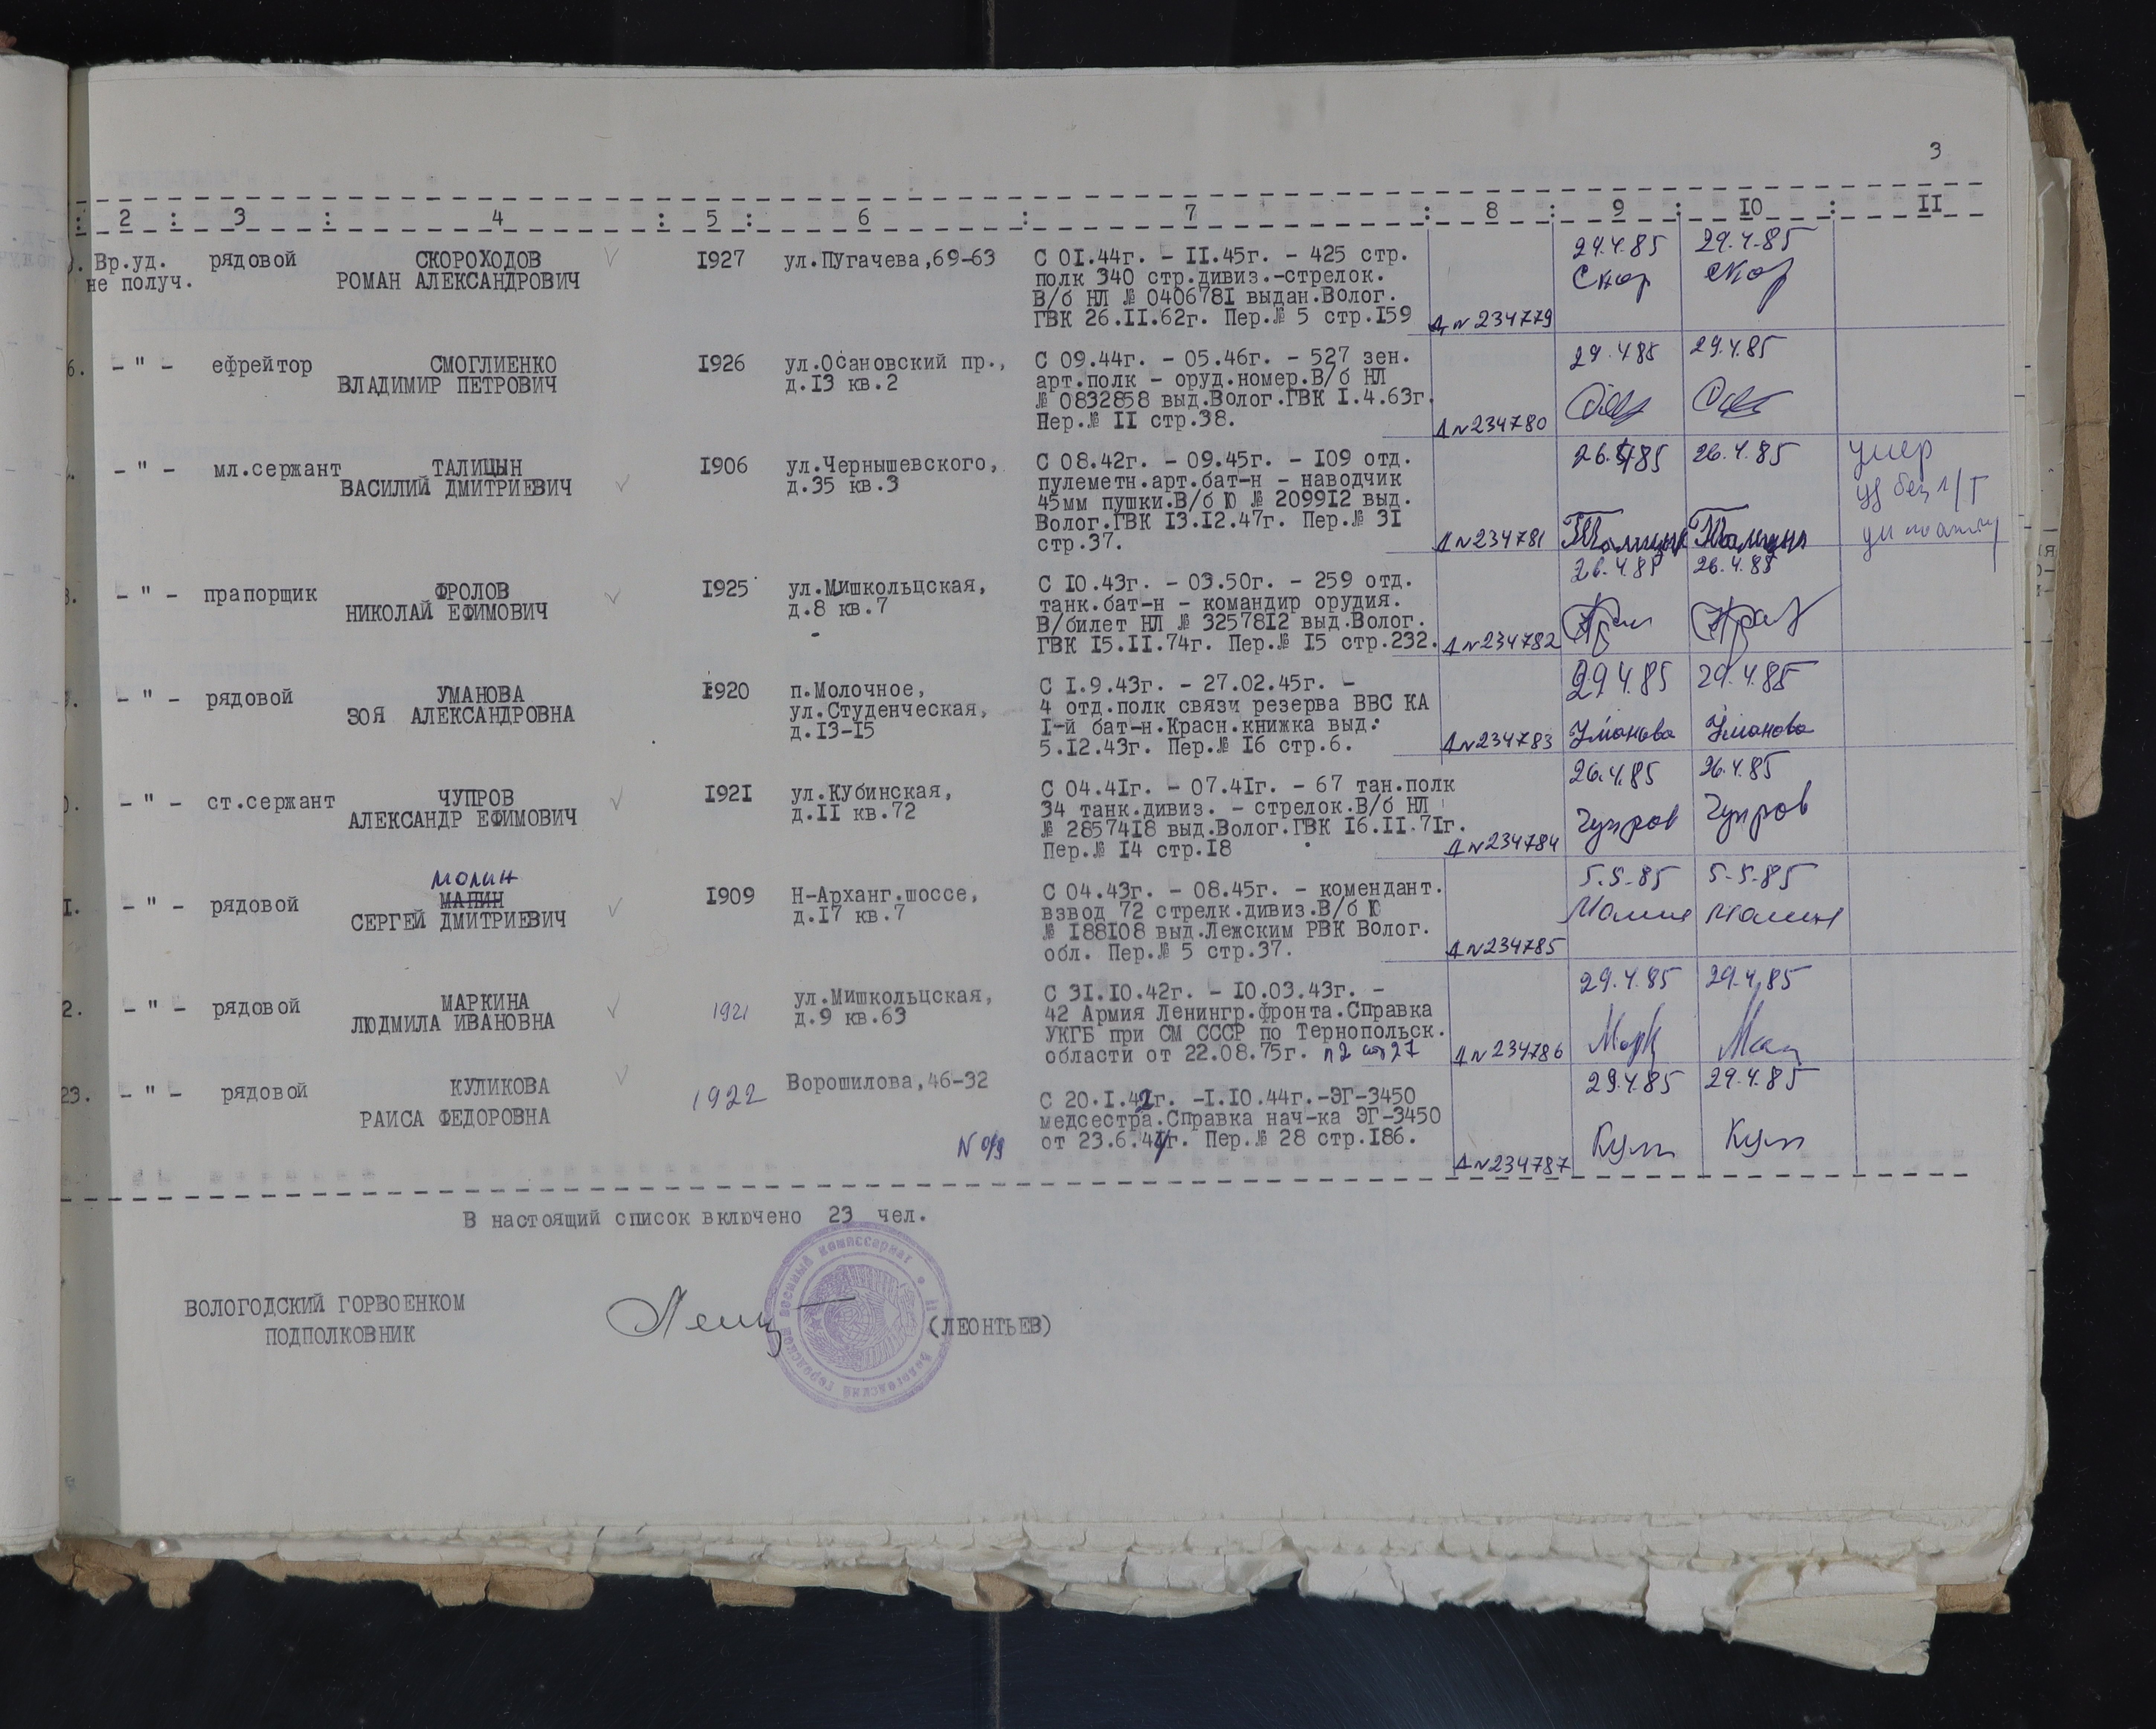 3
2 : 3 : 4 : 5 : 6 : 7 : 8 : 9 : 10 : 11
Вр.уд. рядовой СКОРОХОДОВ 1927 ул.Пугачева,69-63 С 01.44г. - 11.45г. - 425 стр. 29.4.85 29.4.85
не получ. РОМАН АЛЕКСАНДРОВИЧ полк 340 стр.дивиз.-стрелок. Скор Скор
В/б НЛ № 0406781 выдан.Волог.
ГВК 26.11.62г. Пер.№ 5 стр.159 Д № 234779
6. - " - ефрейтор СМОГЛИЕНКО 1926 ул.Осановский пр., С 09.44г. - 05.46г. - 527 зен. 29.4.85 29.4.85
ВЛАДИМИР ПЕТРОВИЧ д.13 кв.2 арт.полк - оруд.номер.В/б НЛ
№ 0832858 выд.Волог.ГВК 1.4.63г.
Пер.№ 11 стр.38. Д № 234780
- " - мл.сержант ТАЛИЦЫН 1906 ул.Чернышевского, С 08.42г. - 09.45г. - 109 отд. 26.4.85 26.4.85 умер
ВАСИЛИЙ ДМИТРИЕВИЧ д.35 кв.3 пулеметн.арт.бат-н - наводчик
45мм пушки.В/б Ю № 209912 выд.
Волог.ГВК 13.12.47г. Пер.№ 31
стр.37. Д № 234781 Талицын Талицын
- " - прапорщик ФРОЛОВ 1925 ул.Мишкольцская, С 10.43г. - 03.50г. - 259 отд. 26.4.85 26.4.85
НИКОЛАЙ ЕФИМОВИЧ д.8 кв.7 танк.бат-н - командир орудия.
В/билет НЛ № 3257812 выд.Волог.
ГВК 15.11.74г. Пер.№ 15 стр.232. Д № 234782
- " - рядовой УМАНОВА 1920 п.Молочное, С 1.9.43г. - 27.02.45г. - 29.4.85 29.4.85
ЗОЯ АЛЕКСАНДРОВНА ул.Студенческая, 4 отд.полк связи резерва ВВС КА
д.13-15 1-й бат-н.Красн.книжка выд.
5.12.43г. Пер.№ 16 стр.6. Д № 234783 Уманова Уманова
- " - ст.сержант ЧУПРОВ 1921 ул.Кубинская, С 04.41г. - 07.41г. - 67 тан.полк 26.4.85 26.4.85
АЛЕКСАНДР ЕФИМОВИЧ д.11 кв.72 34 танк.дивиз. - стрелок.В/б НЛ Чупров Чупров
№ 2857418 выд.Волог.ГВК 16.11.71г.
Пер.№ 14 стр.18 Д № 234784
молин
1. - " - рядовой МАЛИН 1909 Н-Арханг.шоссе, С 04.43г. - 08.45г. - комендант. 5.5.85 5.5.85
СЕРГЕЙ ДМИТРИЕВИЧ д.17 кв.7 взвод 72 стрелк.дивиз.В/б Ю Молин Молин
№ 188108 выд.Лежским РВК Волог.
обл. Пер.№ 5 стр.37. Д № 234785
2. - " - рядовой МАРКИНА 1921 ул.Мишкольцская, С 31.10.42г. - 10.03.43г. - 29.4.85 29.4.85
ЛЮДМИЛА ИВАНОВНА д.9 кв.63 42 Армия Ленингр.фронта.Справка
УКГБ при СМ СССР по Тернопольск. Марк
области от 22.08.75г. п2 ст27 Д № 234786
23. - " - рядовой КУЛИКОВА 1922 Ворошилова,46-32 С 20.1.42г. -1.10.44г.-ЭГ-3450 29.4.85 29.4.85
РАИСА ФЕДОРОВНА медсестра.Справка нач-ка ЭГ-3450 Кул Кул
от 23.6.44г. Пер.№ 28 стр.186. Д № 234787
В настоящий список включено 23 чел.
ВОЛОГОДСКИЙ ГОРВОЕНКОМ
ПОДПОЛКОВНИК (ЛЕОНТЬЕВ)
Вологодский городской военный комиссариат